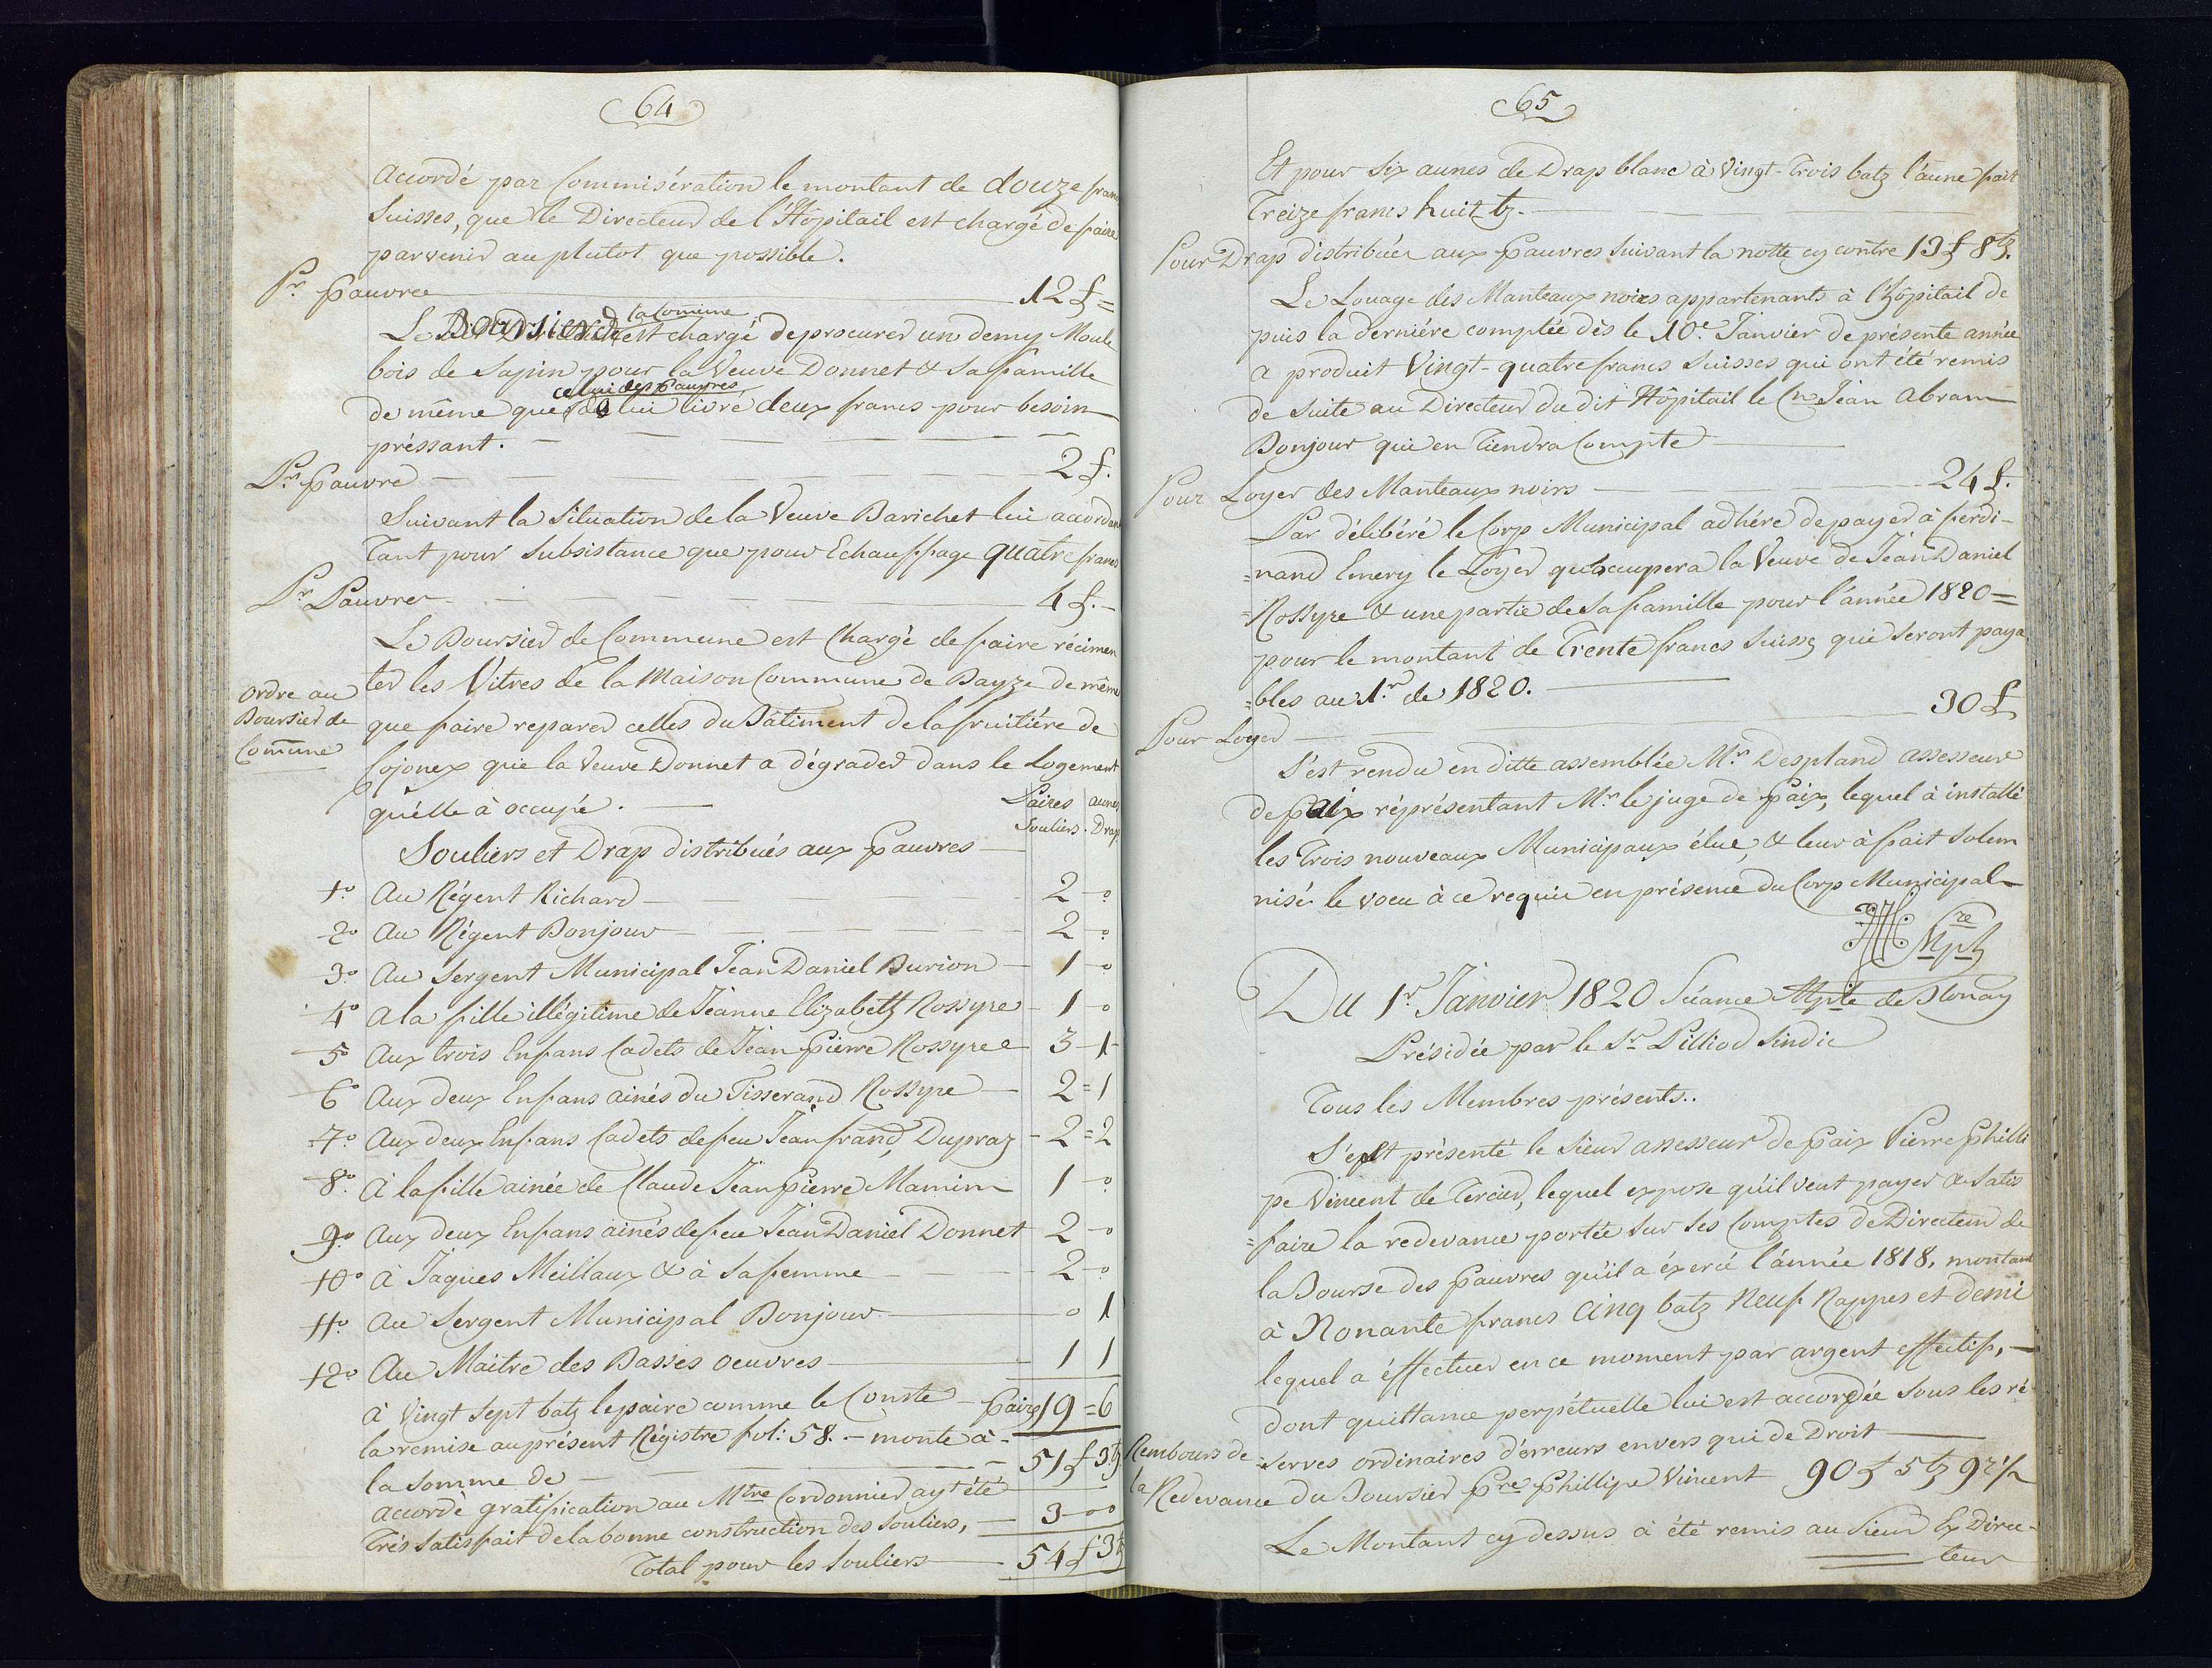 64
accordé par Commisération le montant de douze francs
Suisses, que le Directeur de l'Hôpitail est chargé de faire
parvenir au plutot que possible.
Pr. pauvre 12 f =
la Comune
Le Boursier de est chargé de procurer un demy Moule
bois de Sapin pour la Veuve Donnet & Sa famille
celui des pauvres
de même que lui livré deux francs pour besoin
préssant.
Pr. pauvre 2 f.
Suivant la Situation de la Veuve Barichet lui accordent
Tant pour Subsistance que pour Echauffage quatre francs
Pr. Pauvres 4 f. -
Le Boursier de Commune est Chargé de faire récimen
ordre au Boursier de Comune
ter les Vitres de la Maison Commune de Bayze de même
que faire reparer celles du Bâtiment de la fruitiére de
Cojonex que la Veuve Donnet a dégrader dans le Logement
qu'élle à occupé.
Paires Souliers. aunes Drap
Souliers et Drap distribués aux pauvres
1º Au Régent Richard 2 - 0
2º Au Régent Bonjour 2 - 0
3º Au Sergent Municipal Jean Daniel Burion 1 - 0
4º A la fille illégitime de Jéanne Elizabeth Rossyre 1 - 0
5º Aux trois Enfans Cadets de Jean Pierre Rossyre 3 - 1
6º Aux deux Enfans ainés du Tisserand Rossyre 2 = 1
7º Aux deux Enfans Cadets de feu Jean frand, Dupraz 2 = 2
8º A la fille ainée de Claude Jean Pierre Mamin 1 - 0
9º Aux deux Enfans ainés de feu Jean Daniel Donnet 2 - 0
10º à Jaques Meillaux & à Sa femme 2 - 0
11º Au Sergent Municipal Bonjour 0 1
12º Au Maitre des Basses oeuvres 1 1
à Vingt Sept batz le paire comme le Conste - Paires 19 = 6
la remise au présent Régistre fol: 58. - monte à
la Somme de 51 f 3 tz
accordé gratification au Mtre Cordonnier ayt été
Trés Satisfait de la bonne construction des Souliers, 3 - 00
Total pour les Souliers 54 f 3 tz
65
Et pour Six aunes de Drap blanc à Vingt-Trois batz l'aune fait
Treize francs huit tz.
Pour Drap distribuér aux pauvres Suivant la notte cy contre 13 f 8 tz.
Le Louage des Manteaux noirs appartenants à l'hôpitail de
puis la derniére comptée dès le 10e. Janvier de présente année
a produit Vingt-quatre francs Suisses qui ont été remis
de Suite au Directeur du dit Hôpitail le Cn Jéan Abram
Bonjour qui en Tiendra Compte
Pour Loyer des Manteaux noirs 24 f.
Par délibéré le Corp Municipal adhére de payer à ferdi-
=nand Emery le Loyer qu'occupera la Veuve de Jéan Daniel
=Rossyre & une partie de Sa famille pour l'année 1820 =
pour le montant de Trente francs Suiss, qui Seront paya
=bles au 1.r de 1820.
Pour Loyer 30 f
S'est rendu en ditte assemblée Mr. Despland assesseur
de Paix réprésentant Mr. le juge de Paix, lequel à installé
les Trois nouveaux Municipaux élue, & leur à fait Solem
nisé le voeu à ce requis en présence du Corp Municipal
Du 1r. Janvier 1820 Séance Mple de Blonay
Présidée par le Sr. Pilliod Sindic
Tous les Membres présents..
S'est présenté le Sieur assesseur de Paix Pierre Philli
pe Vincent de Tercier, lequel expose qu'il veut payer & Satis
=faire la redevance portée Sur Ses Comptes de Directeur de
la Bourse des pauvres qu'il a éxercé l'année 1818, montant
à Nonante francs Cinq batz Neuf Rappes et demi
lequel a éffectuer en ce moment par argent effectif,
dont quittance perpétuelle lui est accordée Sous les ré
=serves ordinaires d'érreurs envers qui de Droit
Rembours de la Redevance du Boursier Pre Phillipe Vincent 90 f 5 tz 9 r 1/2
Le Montant cy dessus à été remis au Sieur Ex Direc-
teur